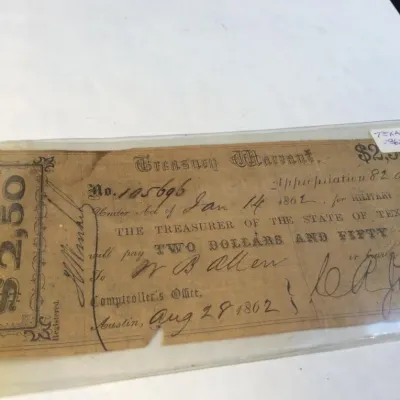 Treasury Warrant.
$2.5
TEXA
186
$2,50
Registered.
No. 105696
Appropriation 82
Under Act of Jan 14 1862, for MILITARY
THE TREASURER OF THE STATE OF TEX
will pay TWO DOLLARS AND FIFTY
To W B Allen
Comptroller's Office.
Austin, Aug 28 1862